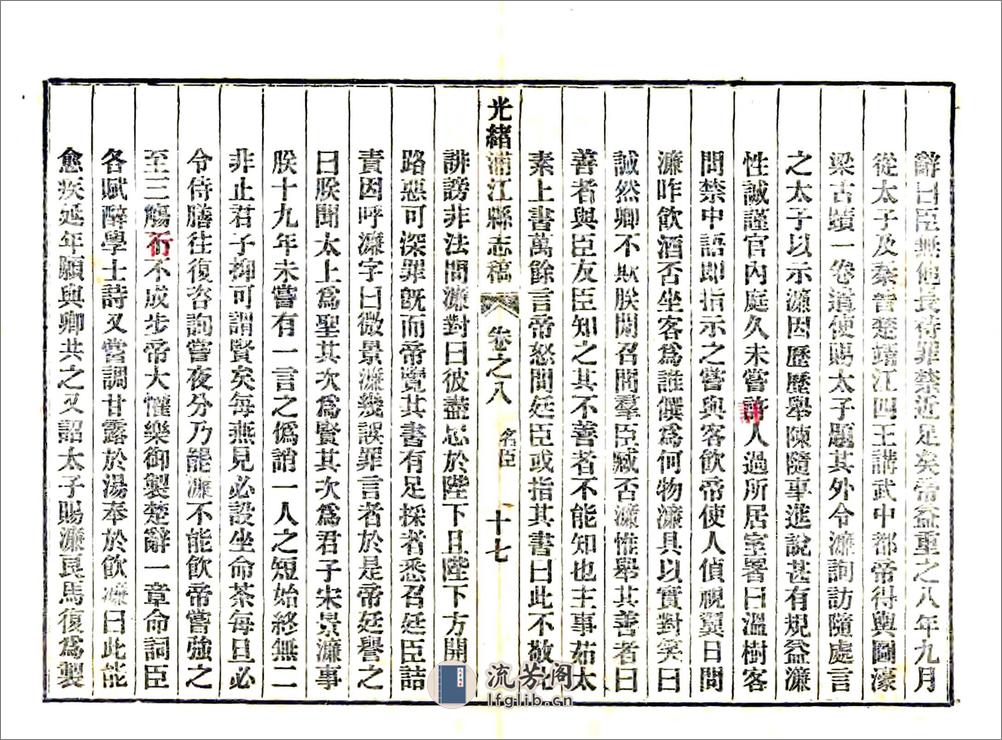 辭曰臣無他長待罪禁近足矣帝益重之八年九月
從太子及秦晉楚靖江四王講武中都帝得與圖濠
梁古蹟一卷遣使賜太子題其外令濂詢訪隨處言
之太子以示濂因歷歷舉陳隨事進說甚有規益濂
性誠謹官內庭久未嘗訐人過所居室署曰溫樹客
問禁中語即指示之嘗與客飲帝使人偵視翼日問
濂昨飲酒否坐客爲誰饌爲何物濂具以實對笑曰
誠然卿不欺朕間召問羣臣臧否濂惟舉其善者曰
善者與臣友臣知之其不善者不能知也主事茹太
素上書萬餘言帝怒問廷臣或指其書曰此不敬此
光緒浦江縣志稿 卷之八 名臣 十七
誹謗非法問濂對曰彼盡忠於陛下且陛下方開
路惡可深罪既而帝覽其書有足採者悉召廷臣詰
責因呼濂字曰微景濂幾誤罪言者於是帝廷譽之
曰朕聞太上爲聖其次爲賢其次爲君子宋景濂事
朕十九年未嘗有一言之僞誚一人之短始終無二
非止君子抑可謂賢矣每燕見必設坐命茶每旦必
令侍膳往復咨詢嘗夜分乃能濂不能飲帝嘗強之
至三觴行不成步帝大懽樂御製楚辭一章命詞臣
各賦醉學士詩又嘗調甘露於湯奉於飲濂曰此能
愈疾延年願與卿共之又詔太子賜濂良馬復爲製
流芳閣
lfglib.cn